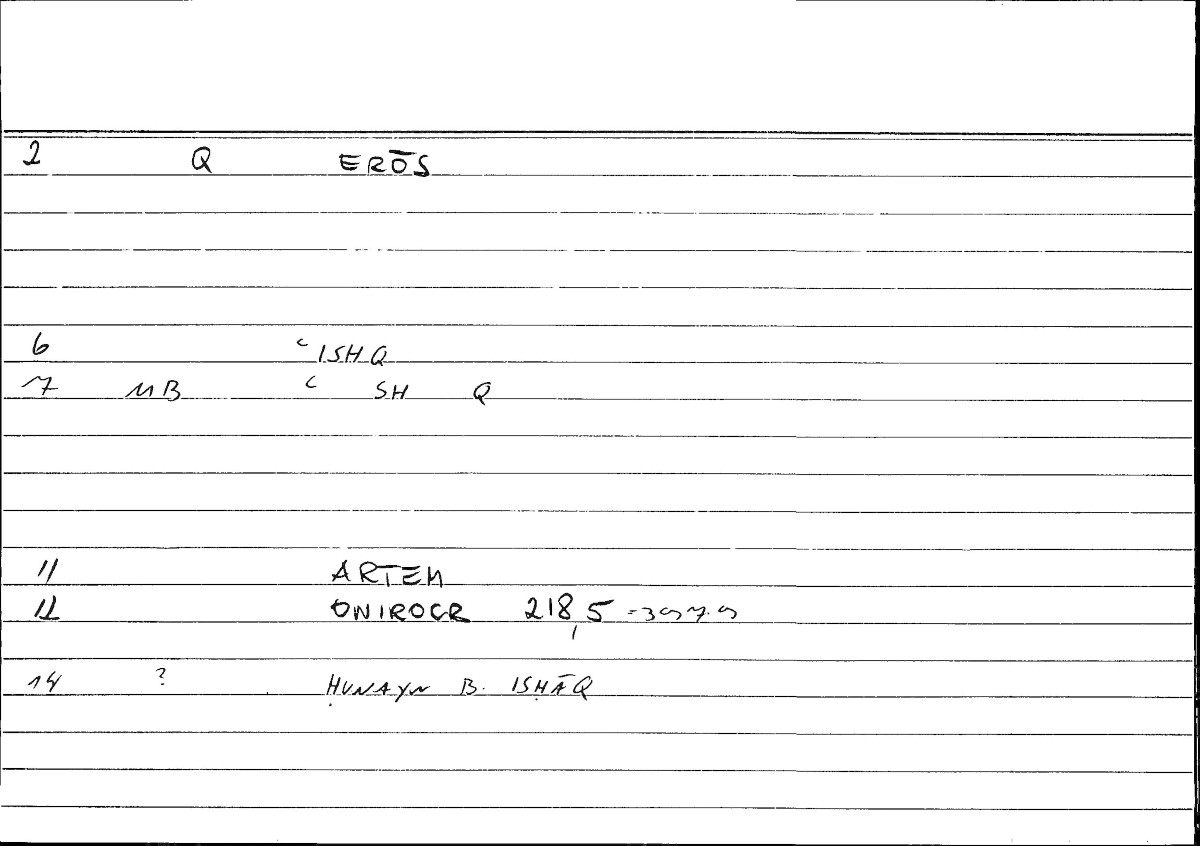 2 Q ERŌS
6 ʿISHQ
7 MB ʿ SH Q
11 ARTEM
12 ONIROCR 218,5 =397.9
14 ? ḤUNAYN B. ISḤĀQ